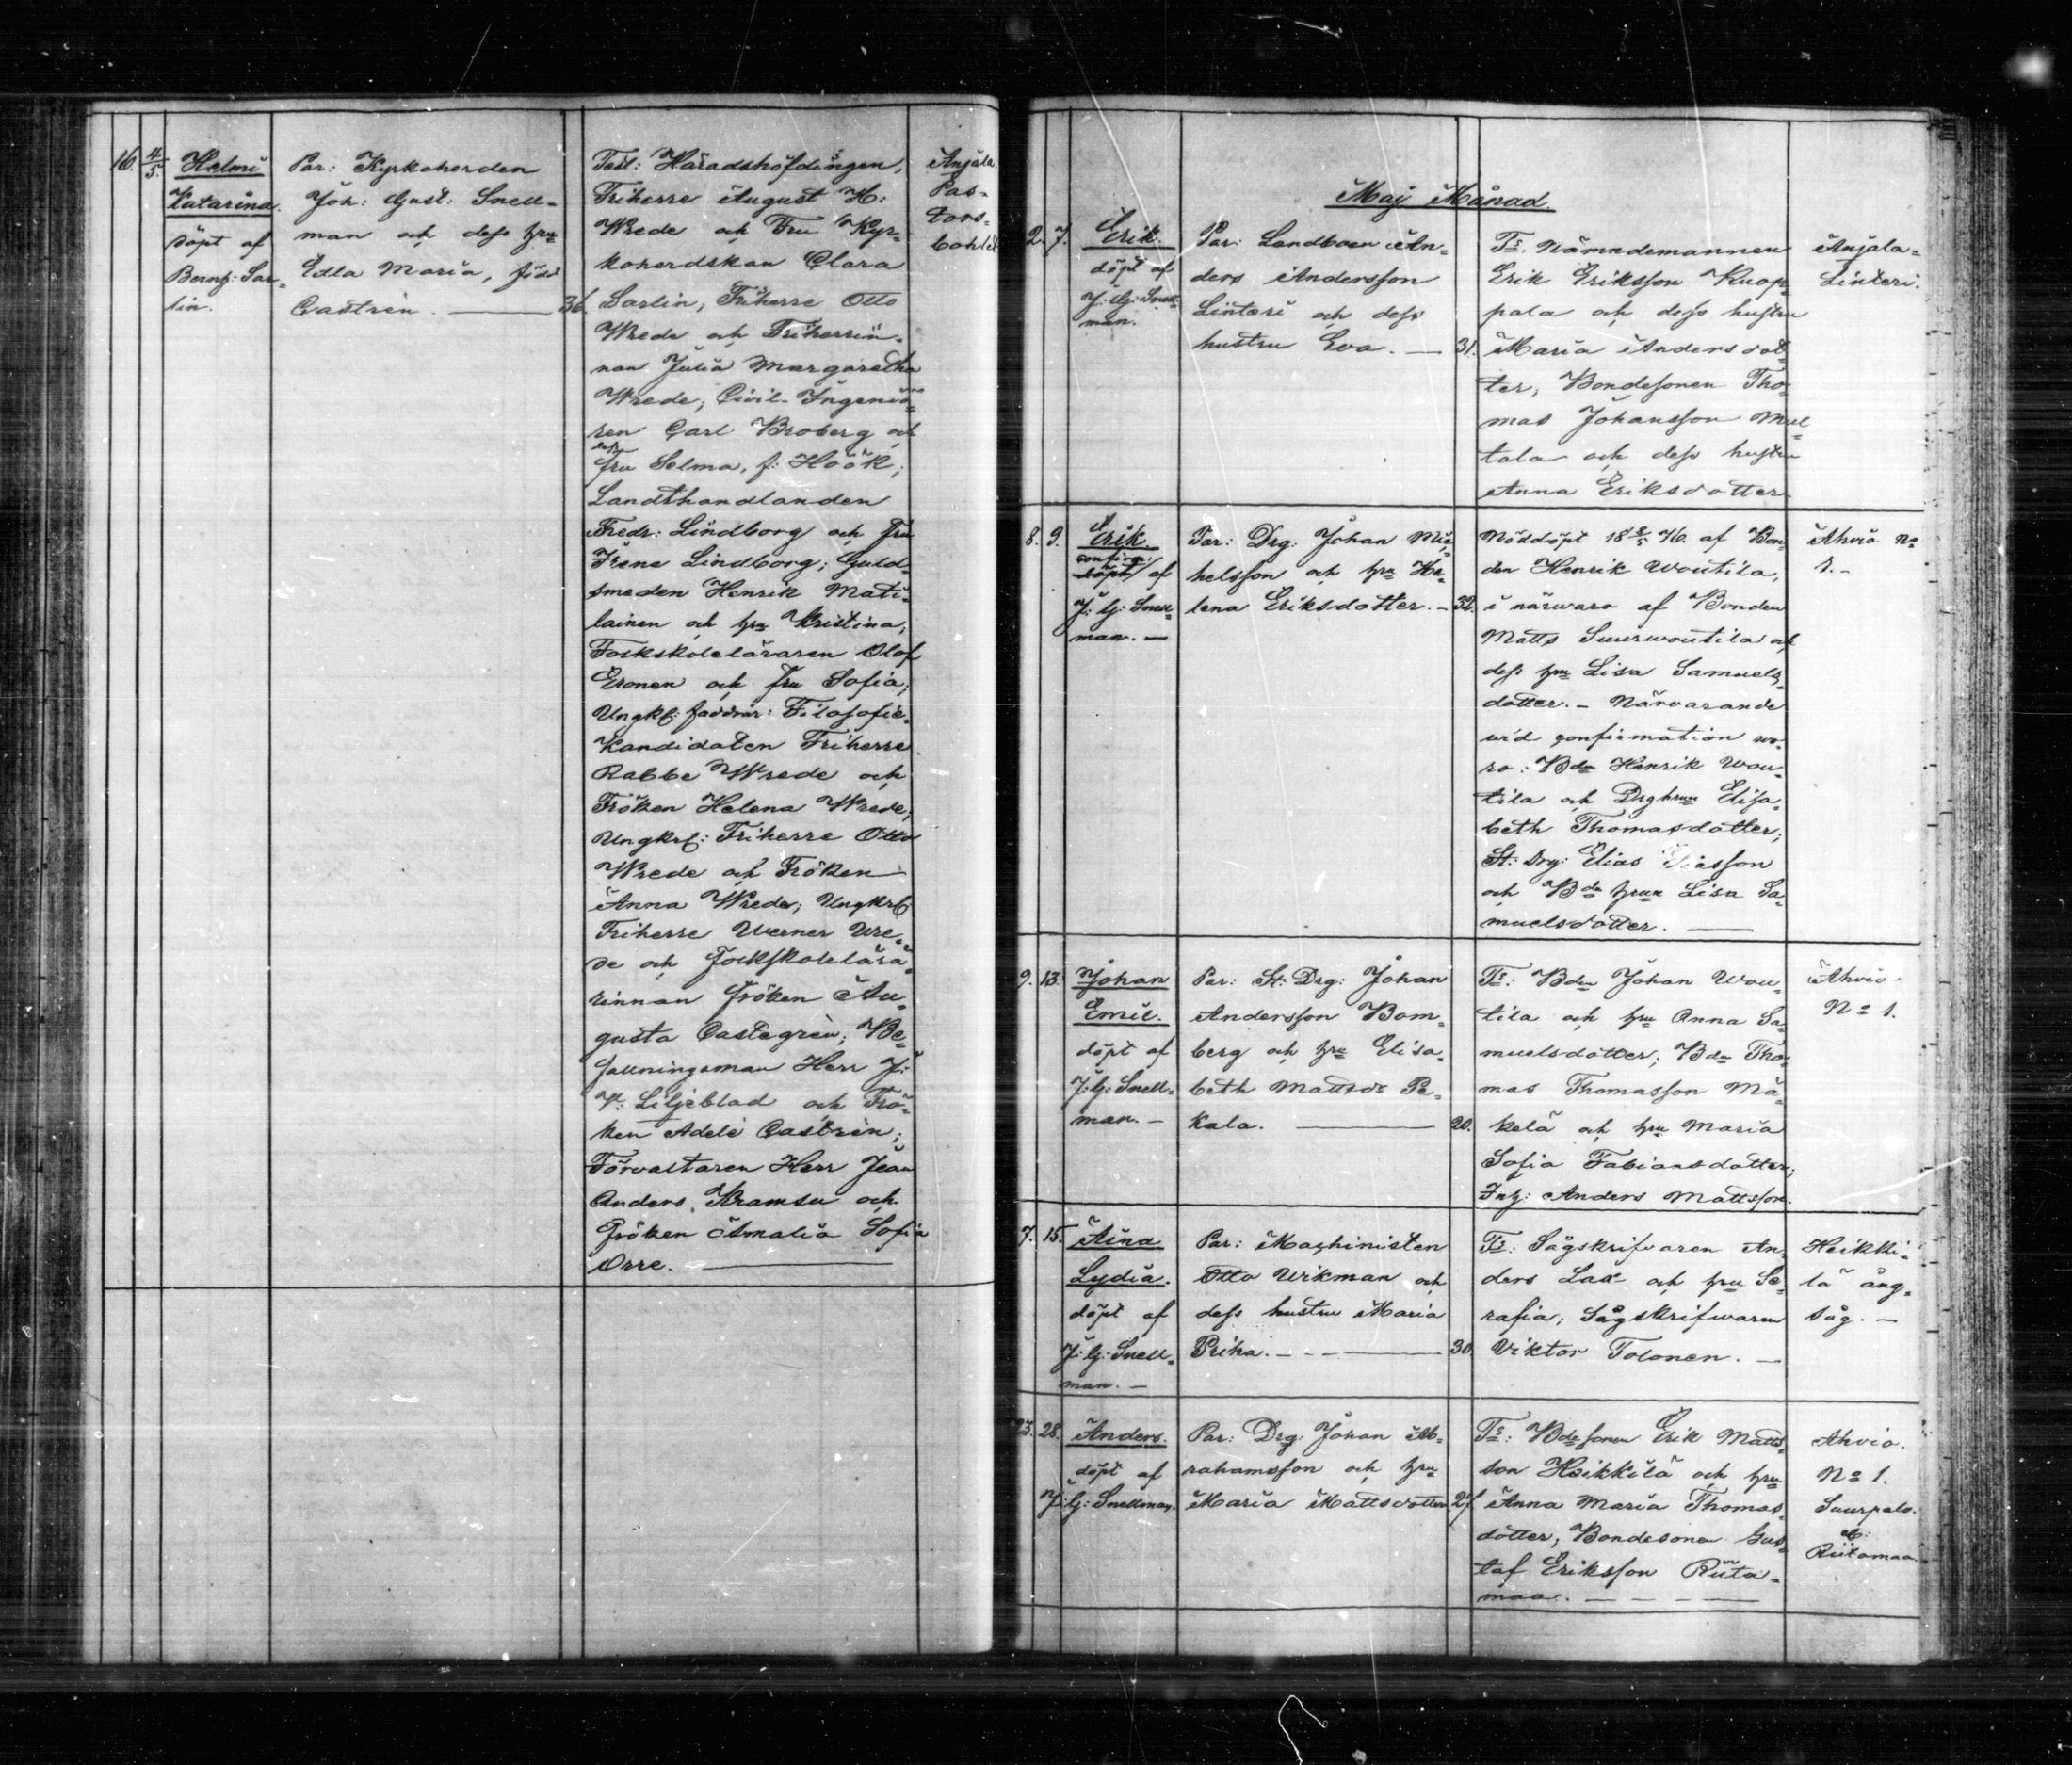 16. 4/5. Helmi
Katarina.
döpt af
Bernh: Sar-
lin.
Par: Kyrkoherden
Joh: Gust: Snell-
man och dess hru
Edla Maria, född
Castrén. — 36.
Test: Häradshöfdingen,
Friherre August H:
Wrede och Fru Kyr-
koherdskan Clara
Sarlin; Friherre Otto
Wrede och Friherrin-
nan Julia Margaretha
Wrede; Civil-Ingeniö-
ren Carl Broberg och
dess
fru Selma, f: Höök;
Landthandlanden
Fredr: Lindborg och fru
Irene Lindborg; Guld-
smeden Henrik Mati-
lainen och hru Kristina;
Folkskoleläraren Olof
Eronen och fru Sofia;
Ungkl: faddrar: Filosofie-
Kandidaten Friherre
Rabbe Wrede och
Fröken Helena Wrede;
Ungkrl: Friherre Otto
Wrede och Fröken
Anna Wrede; Ungkrl:
Friherre Werner Wre-
de och Folkskolelära-
rinnan fröken Au-
gusta Castegrén; Be-
fallningsman Herr J:
V: Liljeblad och Frö-
ken Adele Castrén;
Förvaltaren Herr Jean
Anders Kramsu och
Fröken Amalia Sofia
Orre. —
Anjala
Pas-
tors-
bohle
Maj Månad.
2. 7. Erik.
döpt af
J: G: Snell-
man.
Par: Landboen An-
ders Andersson
Linteri och dess
hustru Eva. — 31.
Ts: Nämndemannen
Erik Eriksson Knap-
pala och dess hustru
Maria Andersdot-
ter; Bondesonen Tho-
mas Johansson Mul-
tala och dess hustru
Anna Eriksdotter
Anjala-
Linteri.
8. 9. Erik.
confirm:
döpt af
J: G: Snell-
man. —
Par: Drg: Johan Mic-
helsson och hru He-
lena Eriksdotter. — 32.
Nöddöpt 18 8/5 76. af Bon-
den Henrik Woutila,
i närwaro af Bonden
Matts Suurwoutila och
dess hru Lisa Samuels-
dotter. — Närvarande
wid confirmation wo-
ro: Bdn Henrik Wou-
tila och Drghrun Elisa-
beth Thomasdotter;
St: Drg: Elias Eliasson
och Bde hrun Lisa Sa-
muelsdotter. —
Ahvio No
1. —
9. 13. Johan
Emil.
döpt af
J: G: Snell-
man. —
Par: St: Drg: Johan
Andersson Bom-
berg och hru Elisa-
beth Mattsdr Pe-
kala. — 20.
Ts: Bdn Johan Wou-
tila och hru Anna Sa-
muelsdotter; Bdn Tho-
mas Thomasson Mä-
kelä och hru Maria
Sofia Fabiansdotter;
Inh: Anders Mattsson.
Ahvio
No 1.
7. 15. Aina
Lydia.
döpt af
J: G: Snell-
man. —
Par: Machinisten
Otto Wikman och
dess hustru Maria
Priha. — 30.
Ts: Sågskrifvaren An-
ders Lax och hru Se-
rafia; Sågskrifwaren
Viktor Tolonen. —
Heikki-
lä ång-
såg. —
23. 28. Anders.
döpt af
J: G: Snellman.
Par: Drg: Johan Ab-
rahamsson och hru
Maria Mattsdotter. 27.
Ts: Bdesonen Erik Matts-
son Heikkilä och hru
Anna Maria Thomas-
dotter; Bondesonen Gus-
taf Eriksson Riita-
maa. —
Ahvio.
No 1.
Suurpalo.
Riitamaa